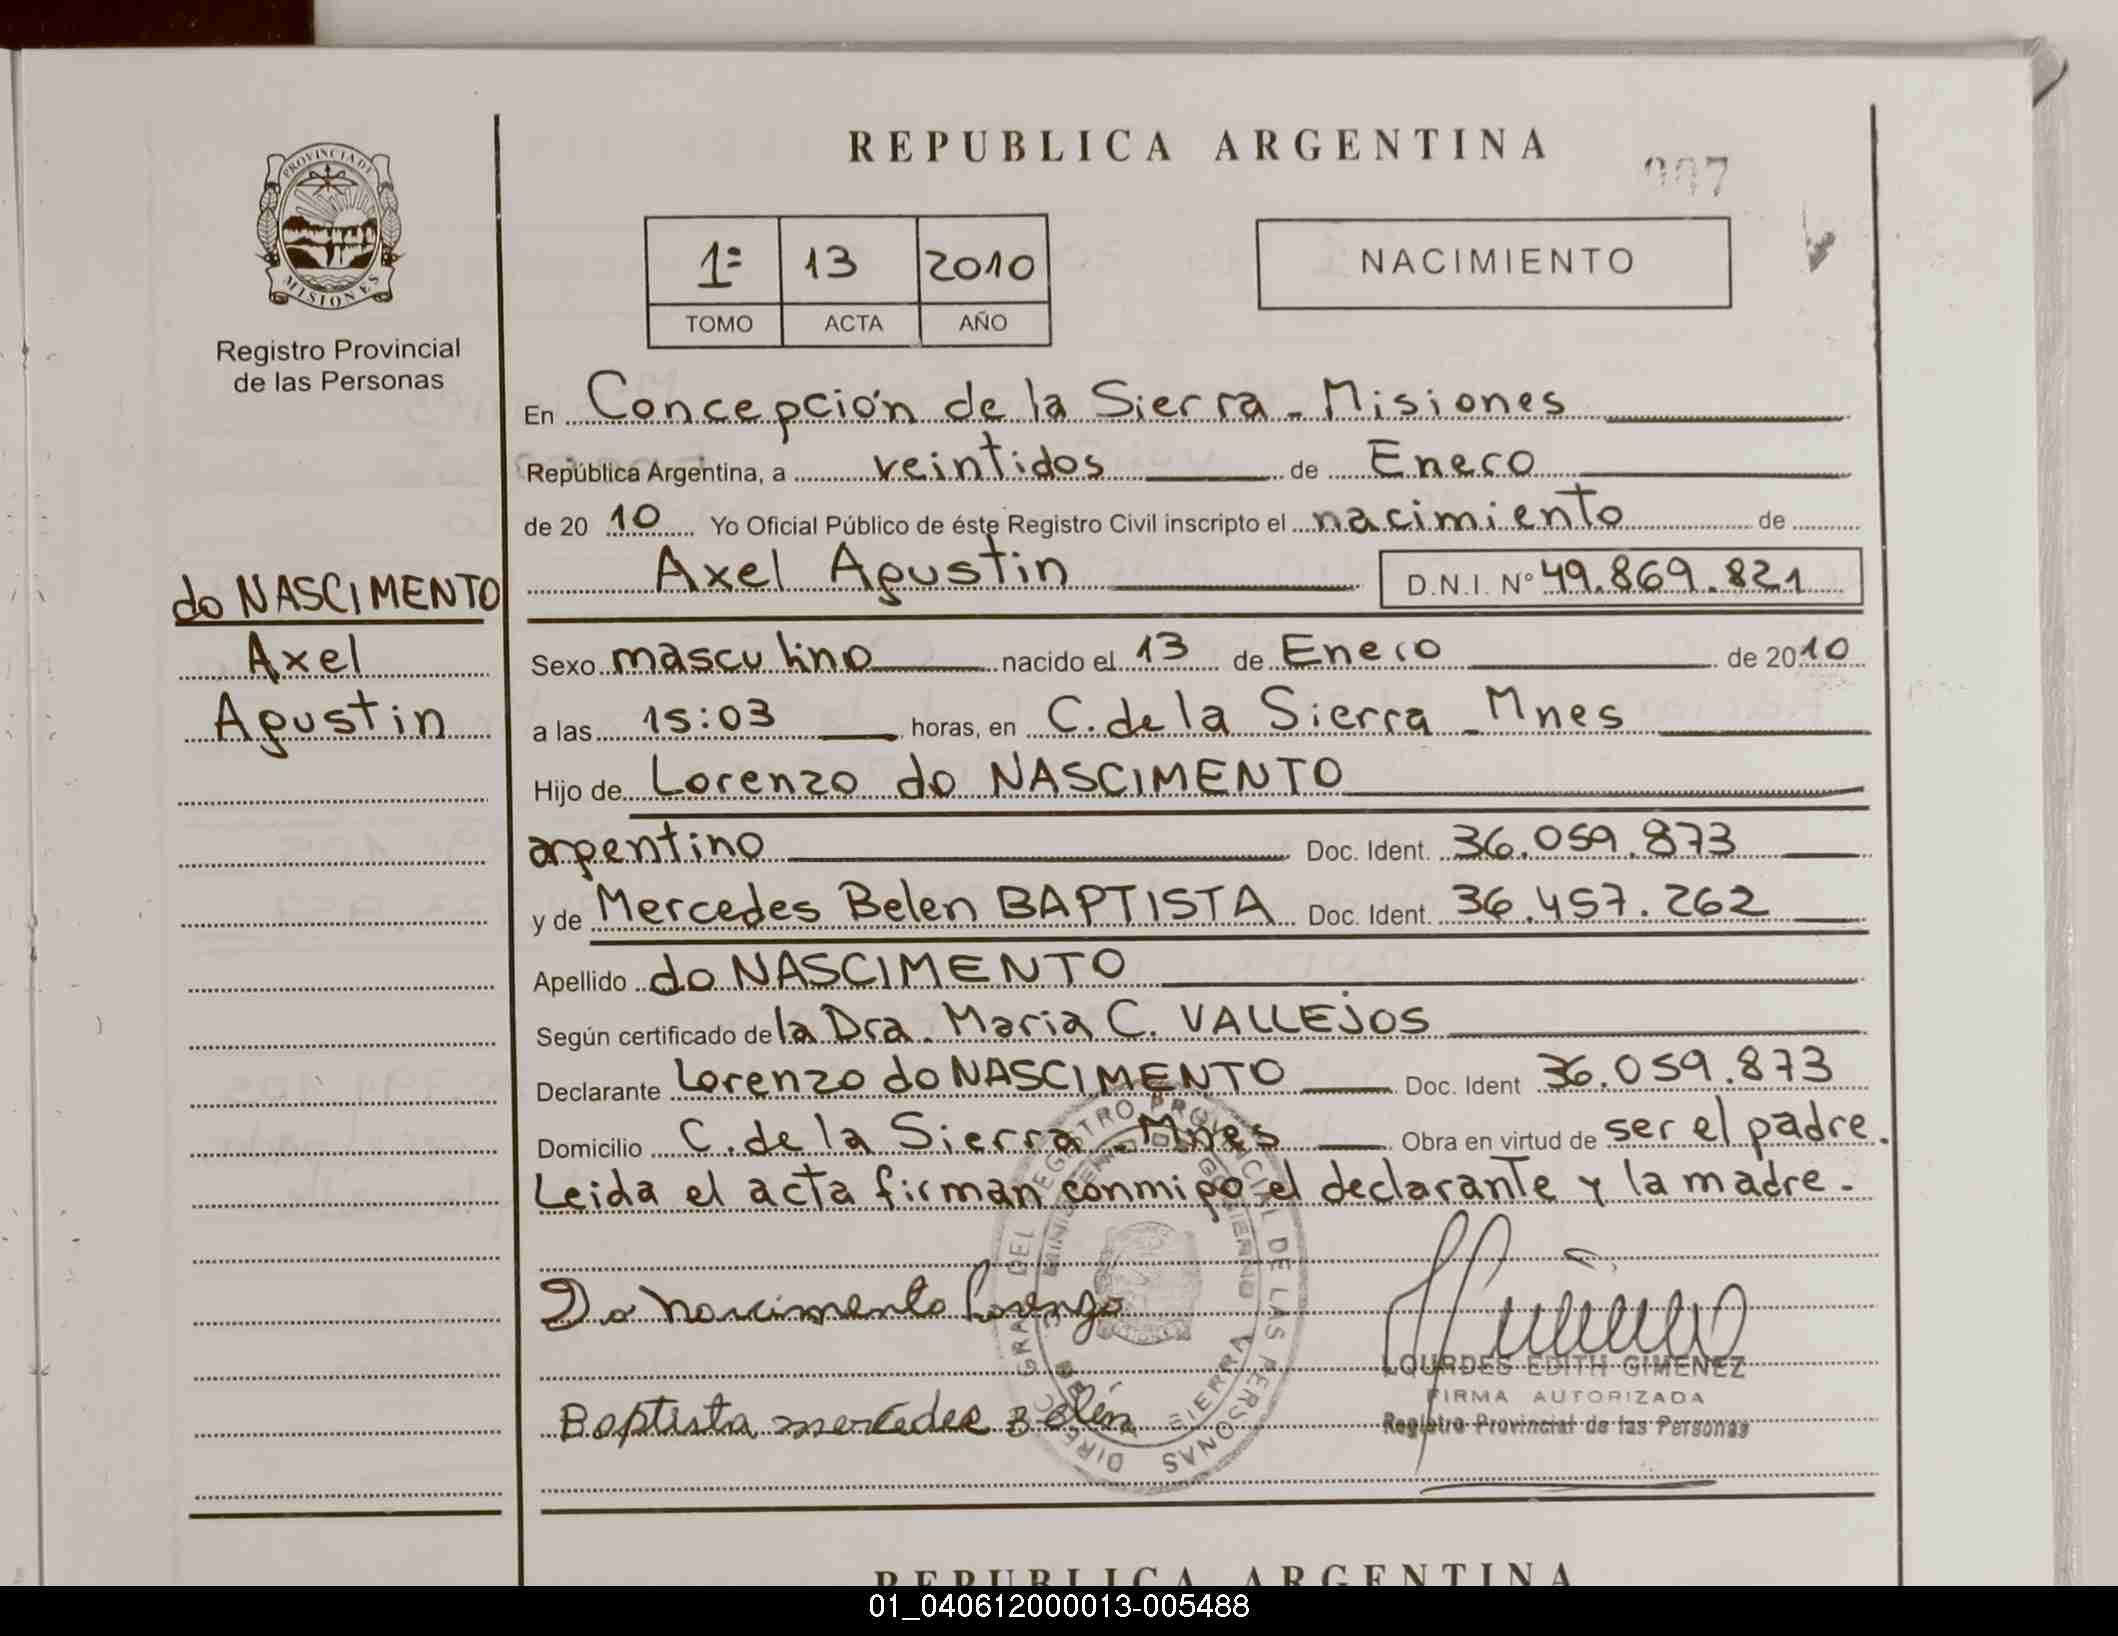 REPUBLICA ARGENTINA
PROVINCIA DE
MISIONES
Registro Provincial
de las Personas
1º 13 2010
TOMO ACTA AÑO
NACIMIENTO
En Concepción de la Sierra - Misiones
República Argentina, a veintidos de Enero
de 2010 Yo Oficial Público de éste Registro Civil inscripto el nacimiento de
Axel Agustin D.N.I. Nº 49.869.821
do NASCIMENTO
Axel
Agustin
Sexo masculino nacido el 13 de Enero de 2010
a las 15:03 horas, en C. de la Sierra - Mnes
Hijo de Lorenzo do NASCIMENTO
argentino Doc. Ident. 36.059.873
y de Mercedes Belen BAPTISTA Doc. Ident. 36.457.262
Apellido do NASCIMENTO
Según certificado de la Dra. Maria C. VALLEJOS
Declarante Lorenzo do NASCIMENTO Doc. Ident 36.059.873
Domicilio C. de la Sierra - Mnes Obra en virtud de ser el padre.
Leida el acta firman conmigo el declarante y la madre.
Do Nascimento Lorenzo
Baptista Mercedes Belén
LOURDES EDITH GIMENEZ
FIRMA AUTORIZADA
Registro Provincial de las Personas
REGISTRO PROVINCIAL DE LAS PERSONAS
SIERRA
REPUBLICA ARGENTINA
01_040612000013-005488